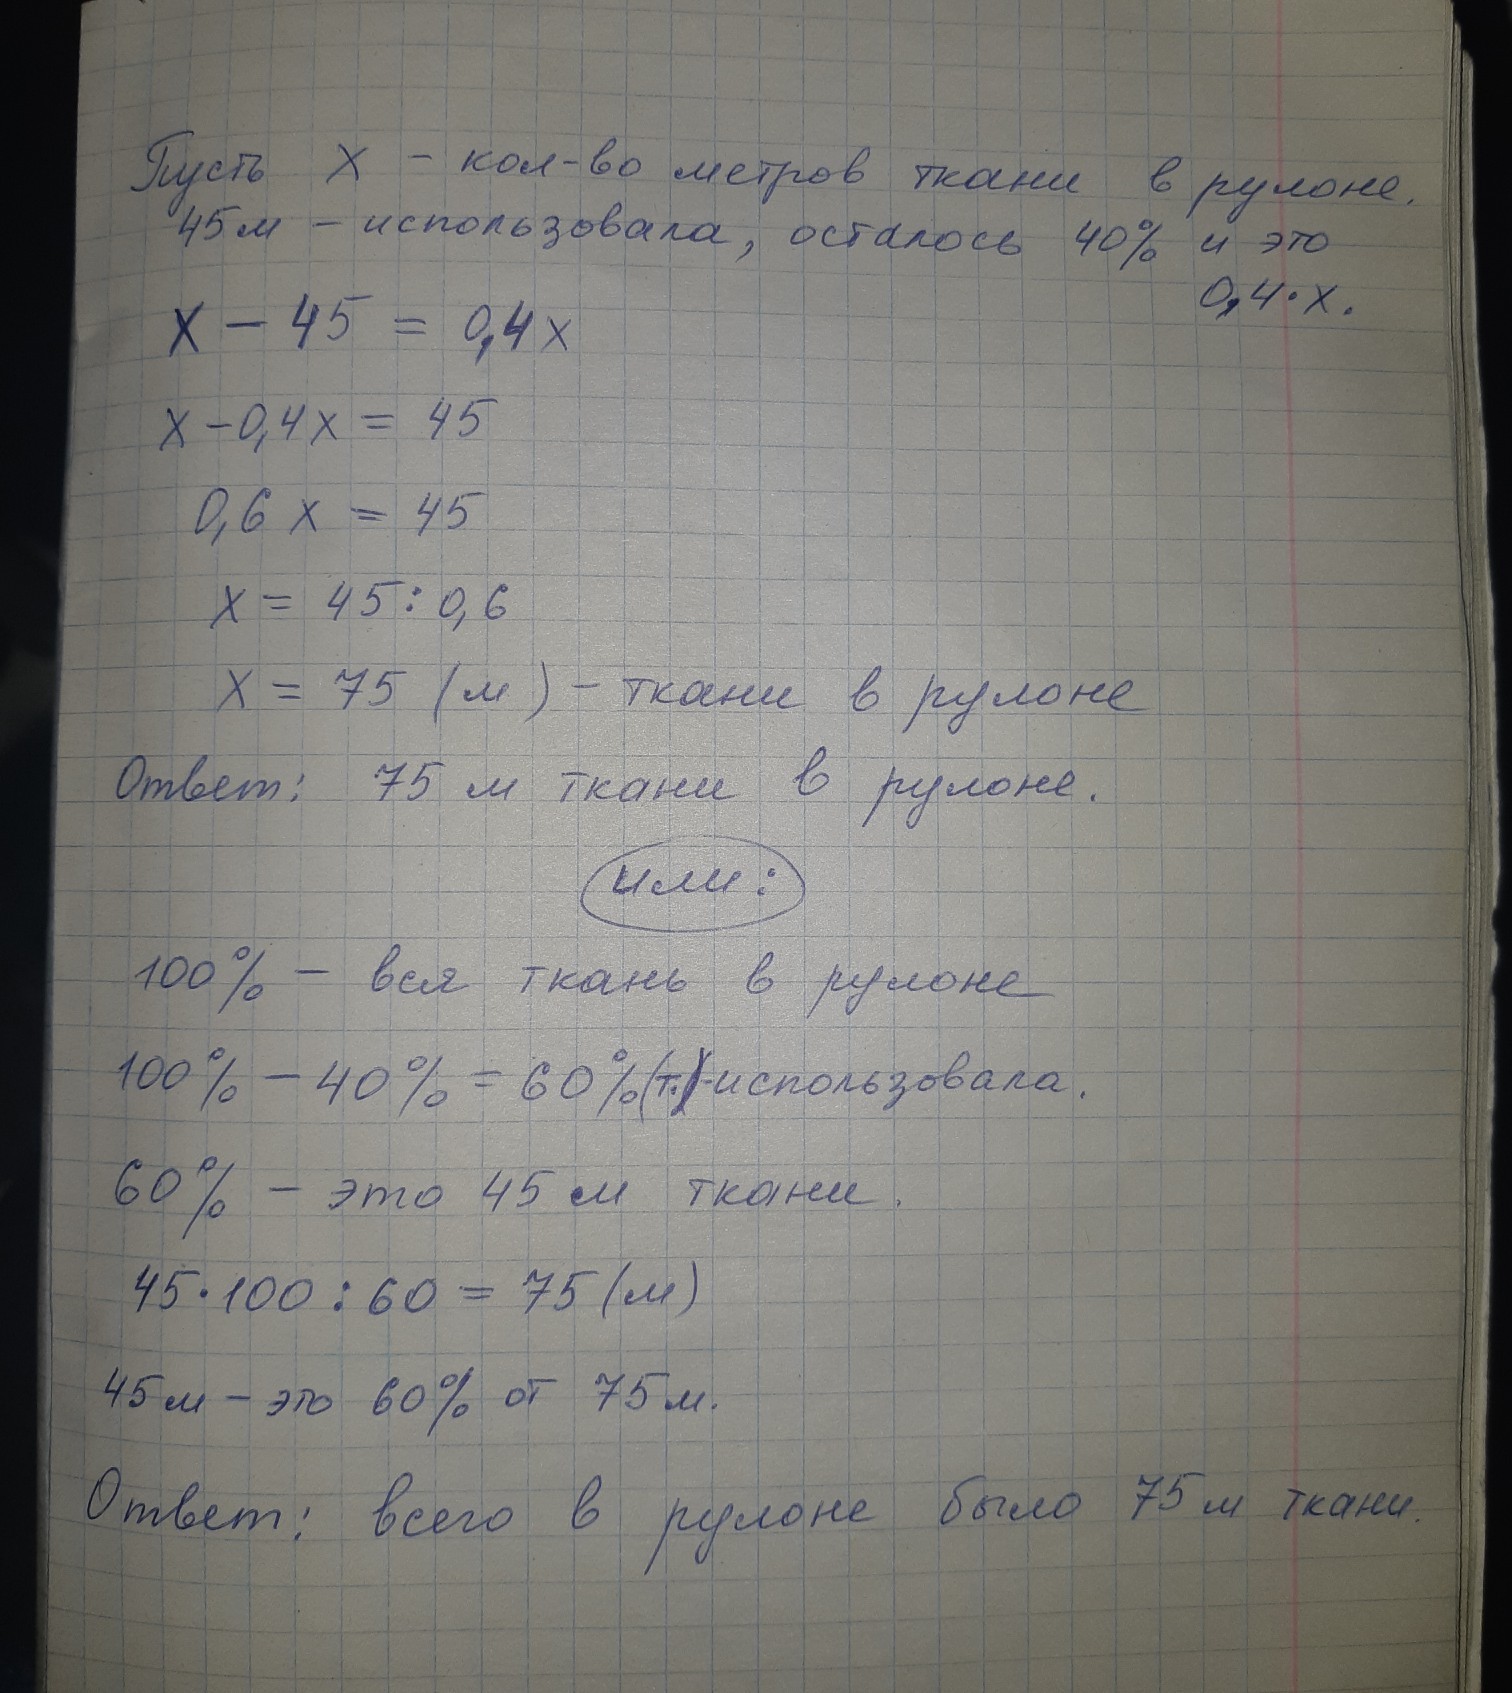 Пусть х - кол-во метров ткани в рулоне.
45м - использовала, осталось 40% и это
0,4·х.
х - 45 = 0,4х
х - 0,4х = 45
0,6х = 45
х = 45:0,6
х = 75 (м) - ткани в рулоне
Ответ: 75 м ткани в рулоне.
или:
100% - вся ткань в рулоне
100% - 40% = 60% (т.) - использовала.
60% - это 45 м ткани.
45·100:60 = 75 (м)
45м - это 60% от 75м.
Ответ: всего в рулоне было 75м ткани.